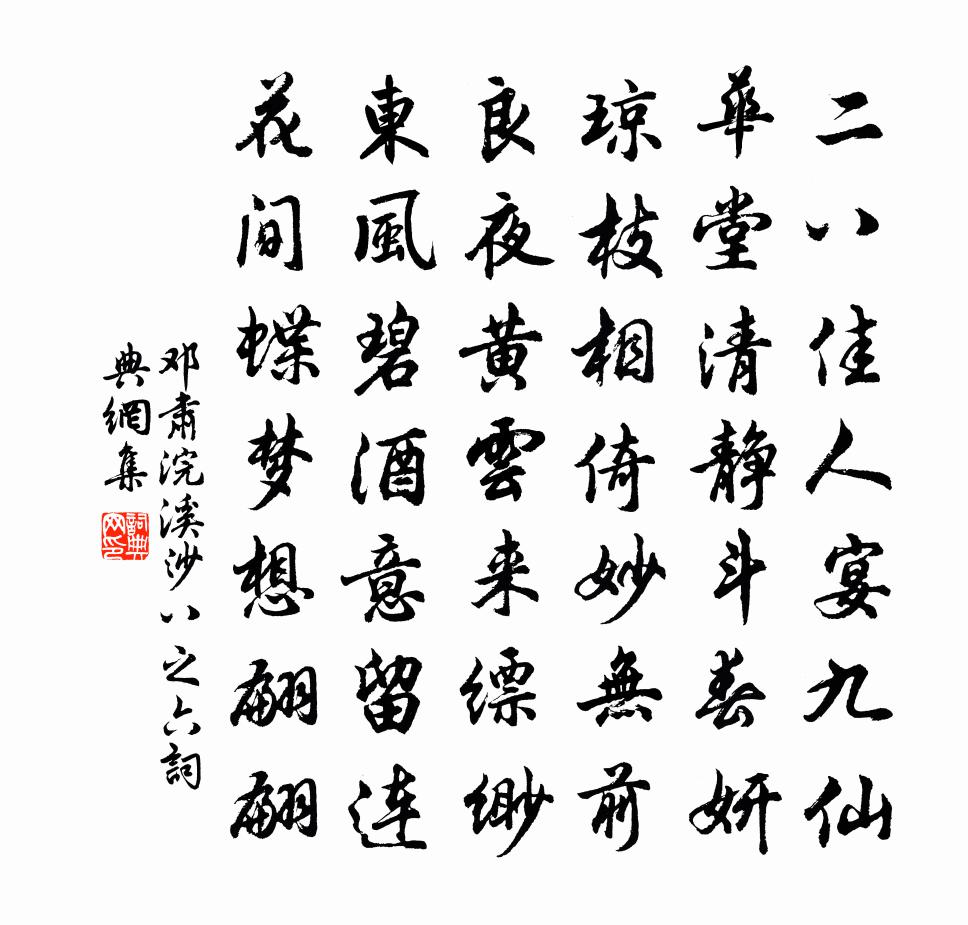 二八佳人宴九仙
華堂清静斗春妍
琼枝相倚妙無前
良夜黄雲来缥缈
東風碧酒意留连
花间蝶梦想翩翩
邓肃浣溪沙八之六詞
典網集
詞典網印